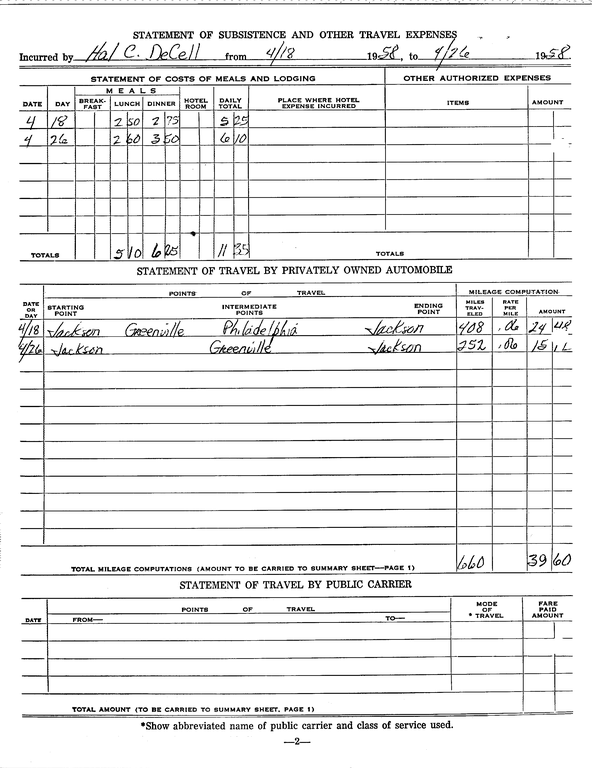 STATEMENT OF SUBSISTENCE AND OTHER TRAVEL EXPENSES
Incurred by Hal C. DeCell from 4/18 1958, to 4/26 1958
STATEMENT OF COSTS OF MEALS AND LODGING OTHER AUTHORIZED EXPENSES
DATE DAY MEALS BREAK-FAST LUNCH DINNER HOTEL ROOM DAILY TOTAL PLACE WHERE HOTEL EXPENSE INCURRED ITEMS AMOUNT
4 18 2 50 2 75 5 25
4 26 2 60 3 50 6 10
TOTALS 5 10 6 25 11 35 TOTALS
STATEMENT OF TRAVEL BY PRIVATELY OWNED AUTOMOBILE
POINTS OF TRAVEL MILEAGE COMPUTATION
DATE OR DAY STARTING POINT INTERMEDIATE POINTS ENDING POINT MILES TRAV-ELED RATE PER MILE AMOUNT
4/18 Jackson Greenville Philadelphia Jackson 408 .06 24 48
4/26 Jackson Greenville Jackson 252 .06 15 12
TOTAL MILEAGE COMPUTATIONS (AMOUNT TO BE CARRIED TO SUMMARY SHEET—PAGE 1) 660 39 60
STATEMENT OF TRAVEL BY PUBLIC CARRIER
POINTS OF TRAVEL
DATE FROM— TO— MODE OF * TRAVEL FARE PAID AMOUNT
TOTAL AMOUNT (TO BE CARRIED TO SUMMARY SHEET, PAGE 1)
*Show abbreviated name of public carrier and class of service used.
—2—